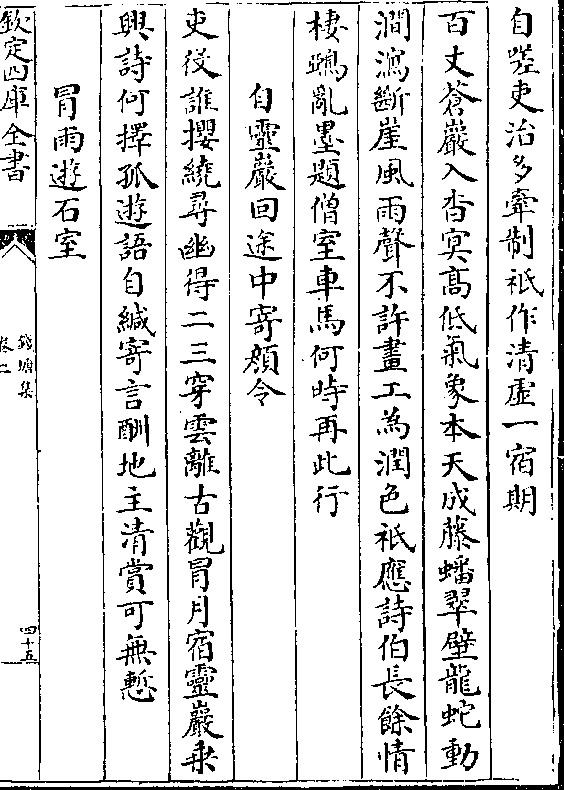 自嗟吏治多牽制祇作清虛一宿期
百丈蒼巖入杳冥高低氣象本天成藤蟠翠壁龍蛇動
澗瀉斷崖風雨聲不許畫工為潤色祇應詩伯長餘情
棲鴉亂墨題僧室車馬何時再此行
自靈巖回途中寄顏令
吏役誰攖繞尋幽得二三穿雲離古觀冐月宿靈巖乗
興詩何擇孤遊語自緘寄言酬地主清賞可無慙
冐雨遊石室
欽定四庫全書
錢塘集
卷二
四十五